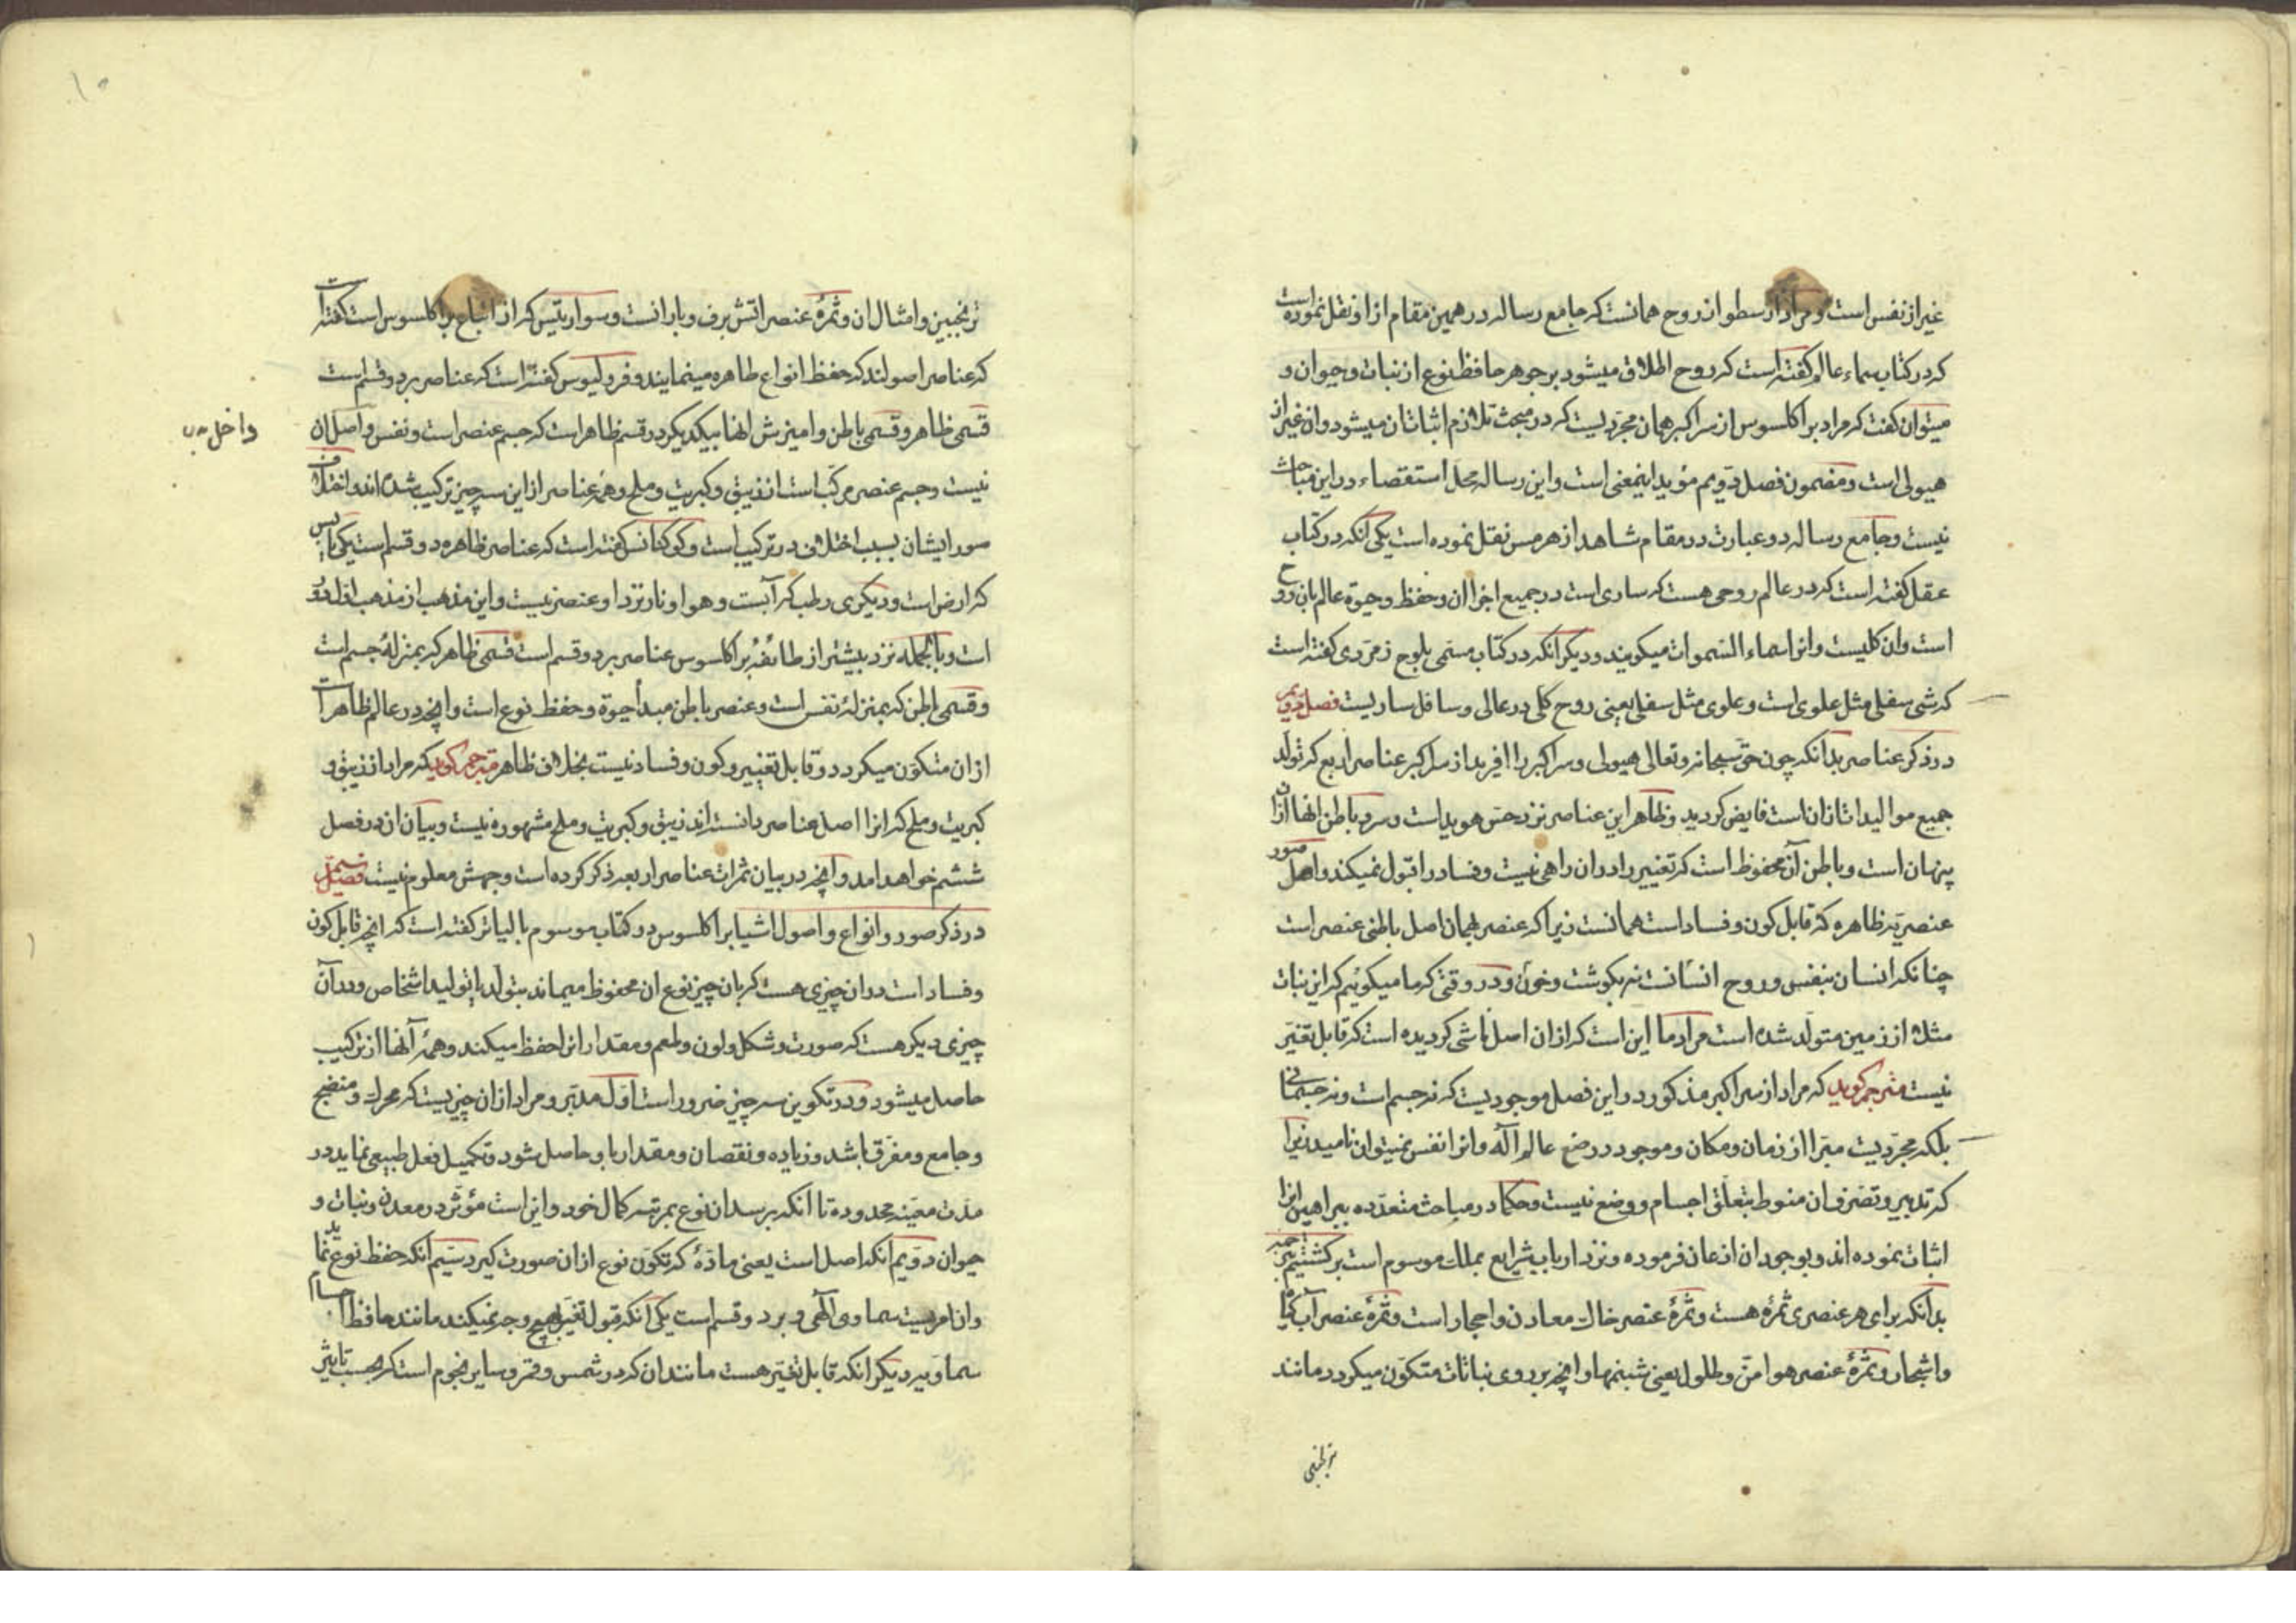 غیر از نفس است و مراد ارسطو از روح همانست که جامع رساله در همین مقام از او نقل نموده است
که در کتاب سماء عالم گفته است که روح اطلاق میشود بر جوهر حافظ نوع از نبات و حیوان و
میتوان گفت که مراد براکلسوس از سر اکبر همان مجردیست که در مبحث تلازم اثبات ان میشود و ان غیر از
هیولی است و مضمون فصل دویم مؤید اینمعنی است و این رساله محل استقصاء در این مباحث
نیست و جامع رساله دو عبارت در مقام شاهد از هرمس نقل نموده است یکی انکه در کتاب
عقل گفته است که در عالم روحی هست که ساری است در جمیع اجزا ان و حفظ و حیوة عالم بان روح
است و ان کلیست و انرا سماء السموات میکویند و دیکر انکه در کتاب مسمی بلوح زمردی کفته است
که شی سفلی مثل علوی است و علوی مثل سفلی یعنی روح کلی در عالی و سافل ساریست فصل دویم
در ذکر عناصر بدانکه چون حق سبحانه و تعالی هیولی و سر اکبر را افرید از سر اکبر عناصر اربع که تولد
جمیع موالیدات از ان است فایض کردید و ظاهر این عناصر نزد حس هویداست و سر و باطن انها از ان
پنهان است و باطن آن محفوظ است که تغییر را در ان راهی نیست و فساد را قبول نمیکند و اصل صور
عنصریه ظاهره که قابل کون و فساد است همانست زیرا که عنصر همان اصل باطنی عنصر است
چنانکه انسان بنفس و روح انسانست نه بکوشت و خون و در وقتی که ما میکوئیم که این نبات
مثلا از زمین متولد شده است مراد ما این است که از ان اصل ناشی کردیده است که قابل تغیر
نیست مترجم کوید که مراد از سر اکبر مذکور در این فصل موجودیست که نه جسم است و نه جسمانی
بلکه مجردیست مبرا از زمان و مکان و موجود در وضع عالم اله و انرا نفس نمیتوان نامید زیرا
که تدبیر و تصرف ان منوط بتعلق اجسام و وضع نیست و حکما در مباحث متعدده ببراهین انرا
اثبات نموده اند و بوجود ان اذعان فرموده و نزد ارباب شرایع بملک موسوم است برکشتیم بترجمه
بدانکه برای هر عنصری ثمرهٔ هست و ثمرهٔ عنصر خاک معادن و احجار است و ثمرهٔ عنصر آب کیا
و اشجار و ثمرهٔ عنصر هوا من و طلول یعنی شبنمها و انچه بر روی نباتات متکون میکردد مانند
ترنجبین
ترنجبین و امثال ان و ثمرهٔ عنصر اتش برف و بارانست و سواریتیس که از اتباع براکلسوس است گفته است
که عناصر اصولند که حفظ انواع ظاهره مینمایند و فرولیوس کفته است که عناصر بر دو قسم است
قسمی ظاهر و قسمی باطن و امیزش انها بیکدیکر در قسم ظاهر است که جسم عنصر است و نفس و اصل ان
داخل
نیست و جسم عنصر مرکب است از زیبق و کبریت و ملح و همه عناصر از این سه چیز ترکیب شده اند و اختلاف
صور ایشان بسبب اختلاف در ترکیب است و کوکتانس کفته است که عناصر ظاهره دو قسم است یکی یابس
که ارض است و دیکری رطب که آبست و هوا و نار نزد او عنصر نیست و این مذهب از مذهب
است و بالجمله نزد بیشتر از طائفهٔ براکلسوس عناصر بر دو قسم است قسمی ظاهر که بمنزلهٔ جسم است
و قسمی باطن که بمنزلهٔ نفس است و عنصر باطن مبدأ حیوة و حفظ نوع است و انچه در عالم ظاهر است
از ان متکون میکردد و قابل تغییر و کون و فساد نیست بخلاف ظاهر مترجم کوید که مراد از زیبق و
کبریت و ملح که انرا اصل عناصر دانسته اند زیبق و کبریت و ملح مشهوره نیست و بیان ان در فصل
ششم خواهد امد و انچه در بیان ثمرات عناصر اربعه ذکر کرده است وجهش معلوم نیست فصل سیم
در ذکر صور و انواع و اصول اشیا براکلسوس در کتاب موسوم بالیاثر کفته است که انچه قابل کون
و فساد است در ان چیزی هست که بان چیز نوع ان محفوظ میماند بتولد یا تولید اشخاص و در آن
چیزی دیکر هست که صورت و شکل و لون و طعم و مقدار انرا حفظ میکند و همهٔ آنها از ترکیب
حاصل میشود و در تکوین سه چیز ضرور است اول مدبر و مراد از ان چیزیست که محرک و منضج
و جامع و مفرق باشد و زیاده و نقصان و مقدار باو حاصل شود و تکمیل فعل طبیعی نماید در
مدت معینه محدوده تا انکه برسد ان نوع بمرتبه کمال خود و این است مؤثر در معدن و نبات و
حیوان دویم انکه اصل است یعنی مادهٔ که تکون نوع از ان صورت کیرد سیم انکه حفظ نوع نماید
و ان امریست سماوی الهی و بر دو قسم است یکی انکه قبول تغیر بهیچ وجه نمیکند مانند حافظ اجسام
سماویه و دیکر انکه قابل تغیر هست مانند ان که در شمس و قمر و سایر نجوم است که بحسب تاثیر